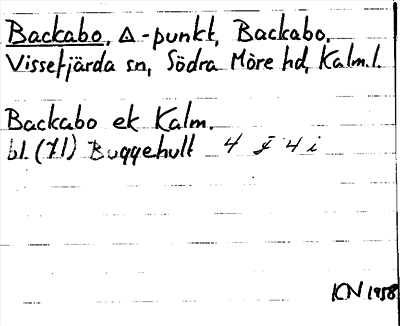 Backabo, Δ-punkt, Backabo,
Vissefjärda sn, Södra Möre hd, Kalm.l.
Backabo ek Kalm.
bl. (71) Buggehult 4 F 4 i
KN 1958